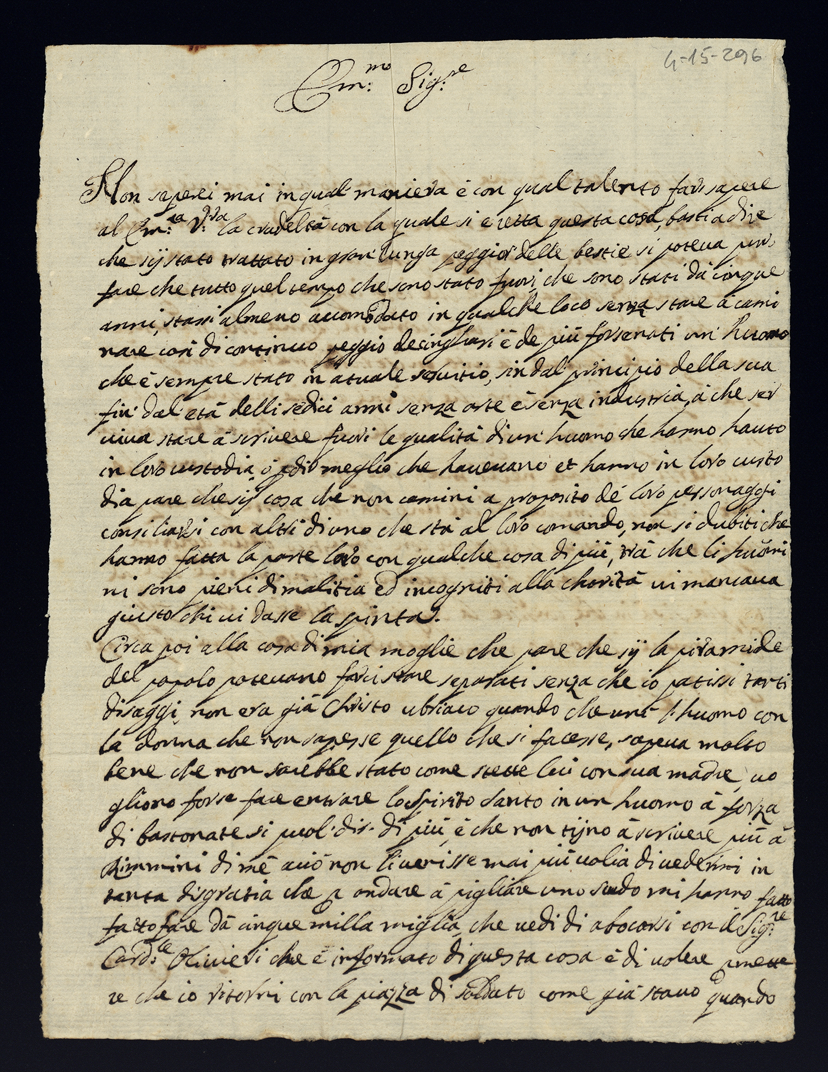 4-15-296
Em:mo Sig:re
Non saperei mai in qual maniera è con qual talento farsi sapere
al Em:za V:ra la crudeltà con la quale si è retta questa cosa, basti a dire
che sij stato trattato in gran lunga peggior delle bestie si poteva pur
fare che tutto quel tempo che sono stato fuori, che sono stati da cinque
anni, stassi almeno accomodato in qualche loco senza stare à cami
nare così di continuo peggio de cinghiari è de più forsenati un' huomo
che è sempre stato in atuale servitio, sin dal principio della sua
fin' dal età delli sedici anni senza arte è senza industria, à che ser
viva stare à scrivere fuori le qualità di un' huomo che hanno hauto
in loro custodia, ò p dir meglio che havevano et hanno in loro custo
dia pare che sij cosa che non camini a proposito de loro personaggi
consiliarsi con altri di uno che stà al loro comando, non si dubiti che
hanno fatta la parte loro con qualche cosa di più, già che li huomi
ni sono pieni di malitia ed incogniti alla charità vi mancava
giusto chi vi dasse la spinta.
Circa poi alla cosa di mia moglie che pare che sij la piramide
del popolo potevano farci stare separati senza che io patissi tanti
disaggi, non era già Christo ubriaco quando che unì l'huomo con
la donna che non sapesse quello che si facesse, sapeva molto
bene che non sarebbe stato come stette lui con sua madre, vo
gliono forse fare entrare lo Spirito Santo in un huomo à forza
di bastonate si puol' dir di più, è che non tijno à scrivere più à
Rimmini di mè acciò non li venisse mai più volia di vedermi in
tanta disgratia che p andare à pigliare uno scudo mi hanno fatto
fatto fare da cinque milla miglia, che vedi di abocarsi con il Sig:re
Card:le Olivieri che è informato di questa cosa è di volere pmette
re che io ritorni con la piazza di soldato come già stavo quando